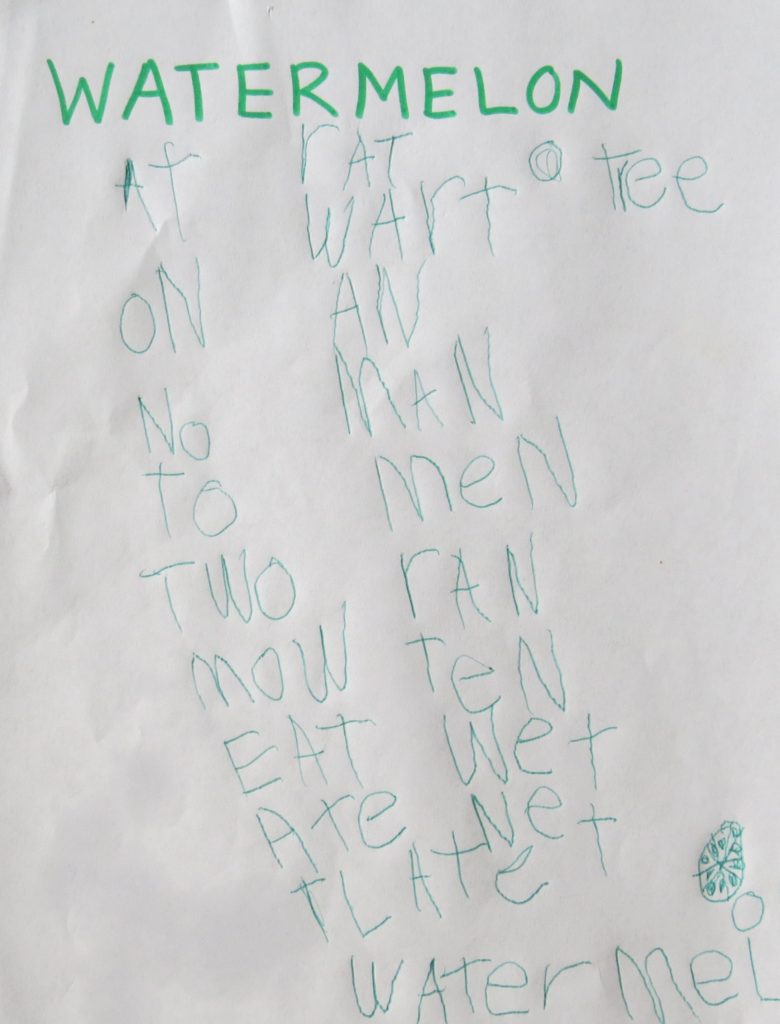 WATERMELON
AT rAT Tree
WArT
ON AN
MAN
No
TO meN
TWO rAN
mOW TeN
EAT WeT
ATe NeT
TLATe
WATermeLO